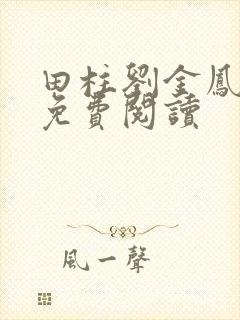 田柱劉金鳳
免費閱讀
風一聲